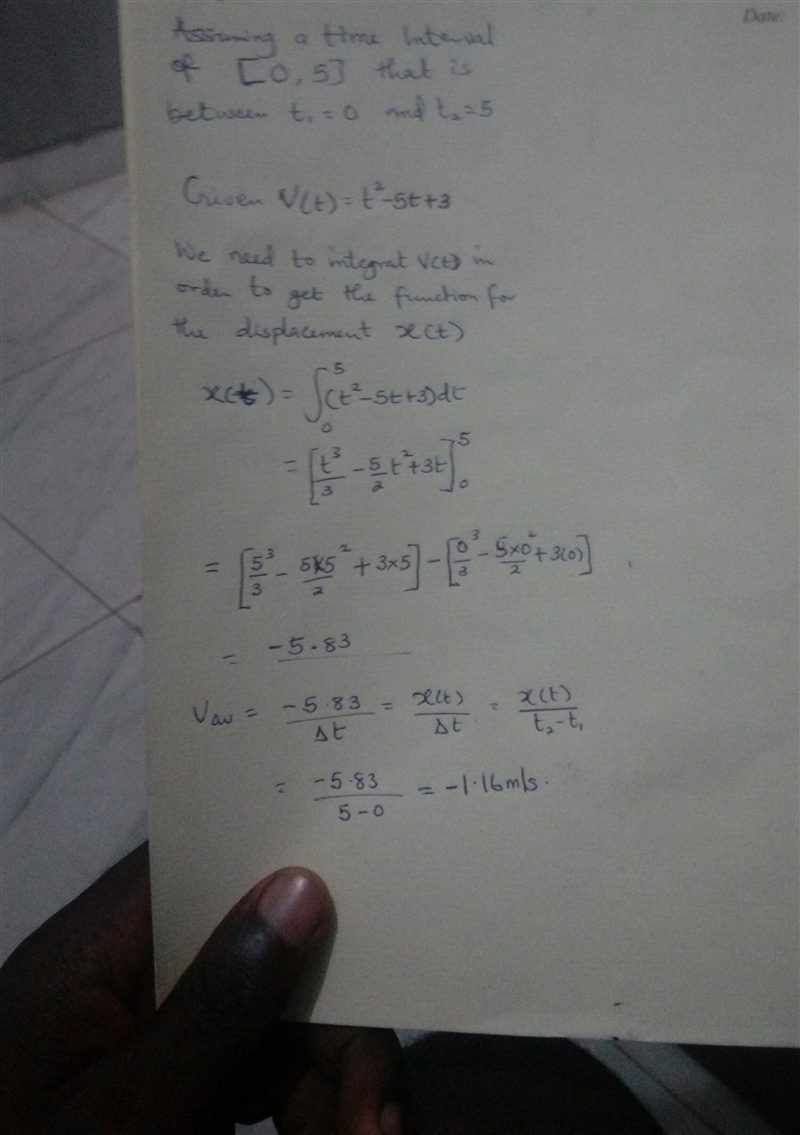 Date:
Assuming a time interval
of [0, 5] that is
between t₁ = 0 and t₂ = 5
Given V(t) = t² - 5t + 3
We need to integrat V(t) in
order to get the function for
the displacement x(t)
x(t) = ∫₀⁵ (t² - 5t + 3) dt
= [t³/3 - 5/2 t² + 3t]₀⁵
= [5³/3 - 5×5²/2 + 3×5] - [0³/3 - 5×0²/2 + 3(0)]
= -5.83
Vav = -5.83/Δt = x(t)/Δt = x(t)/t₂-t₁
= -5.83/5-0 = -1.16m/s.